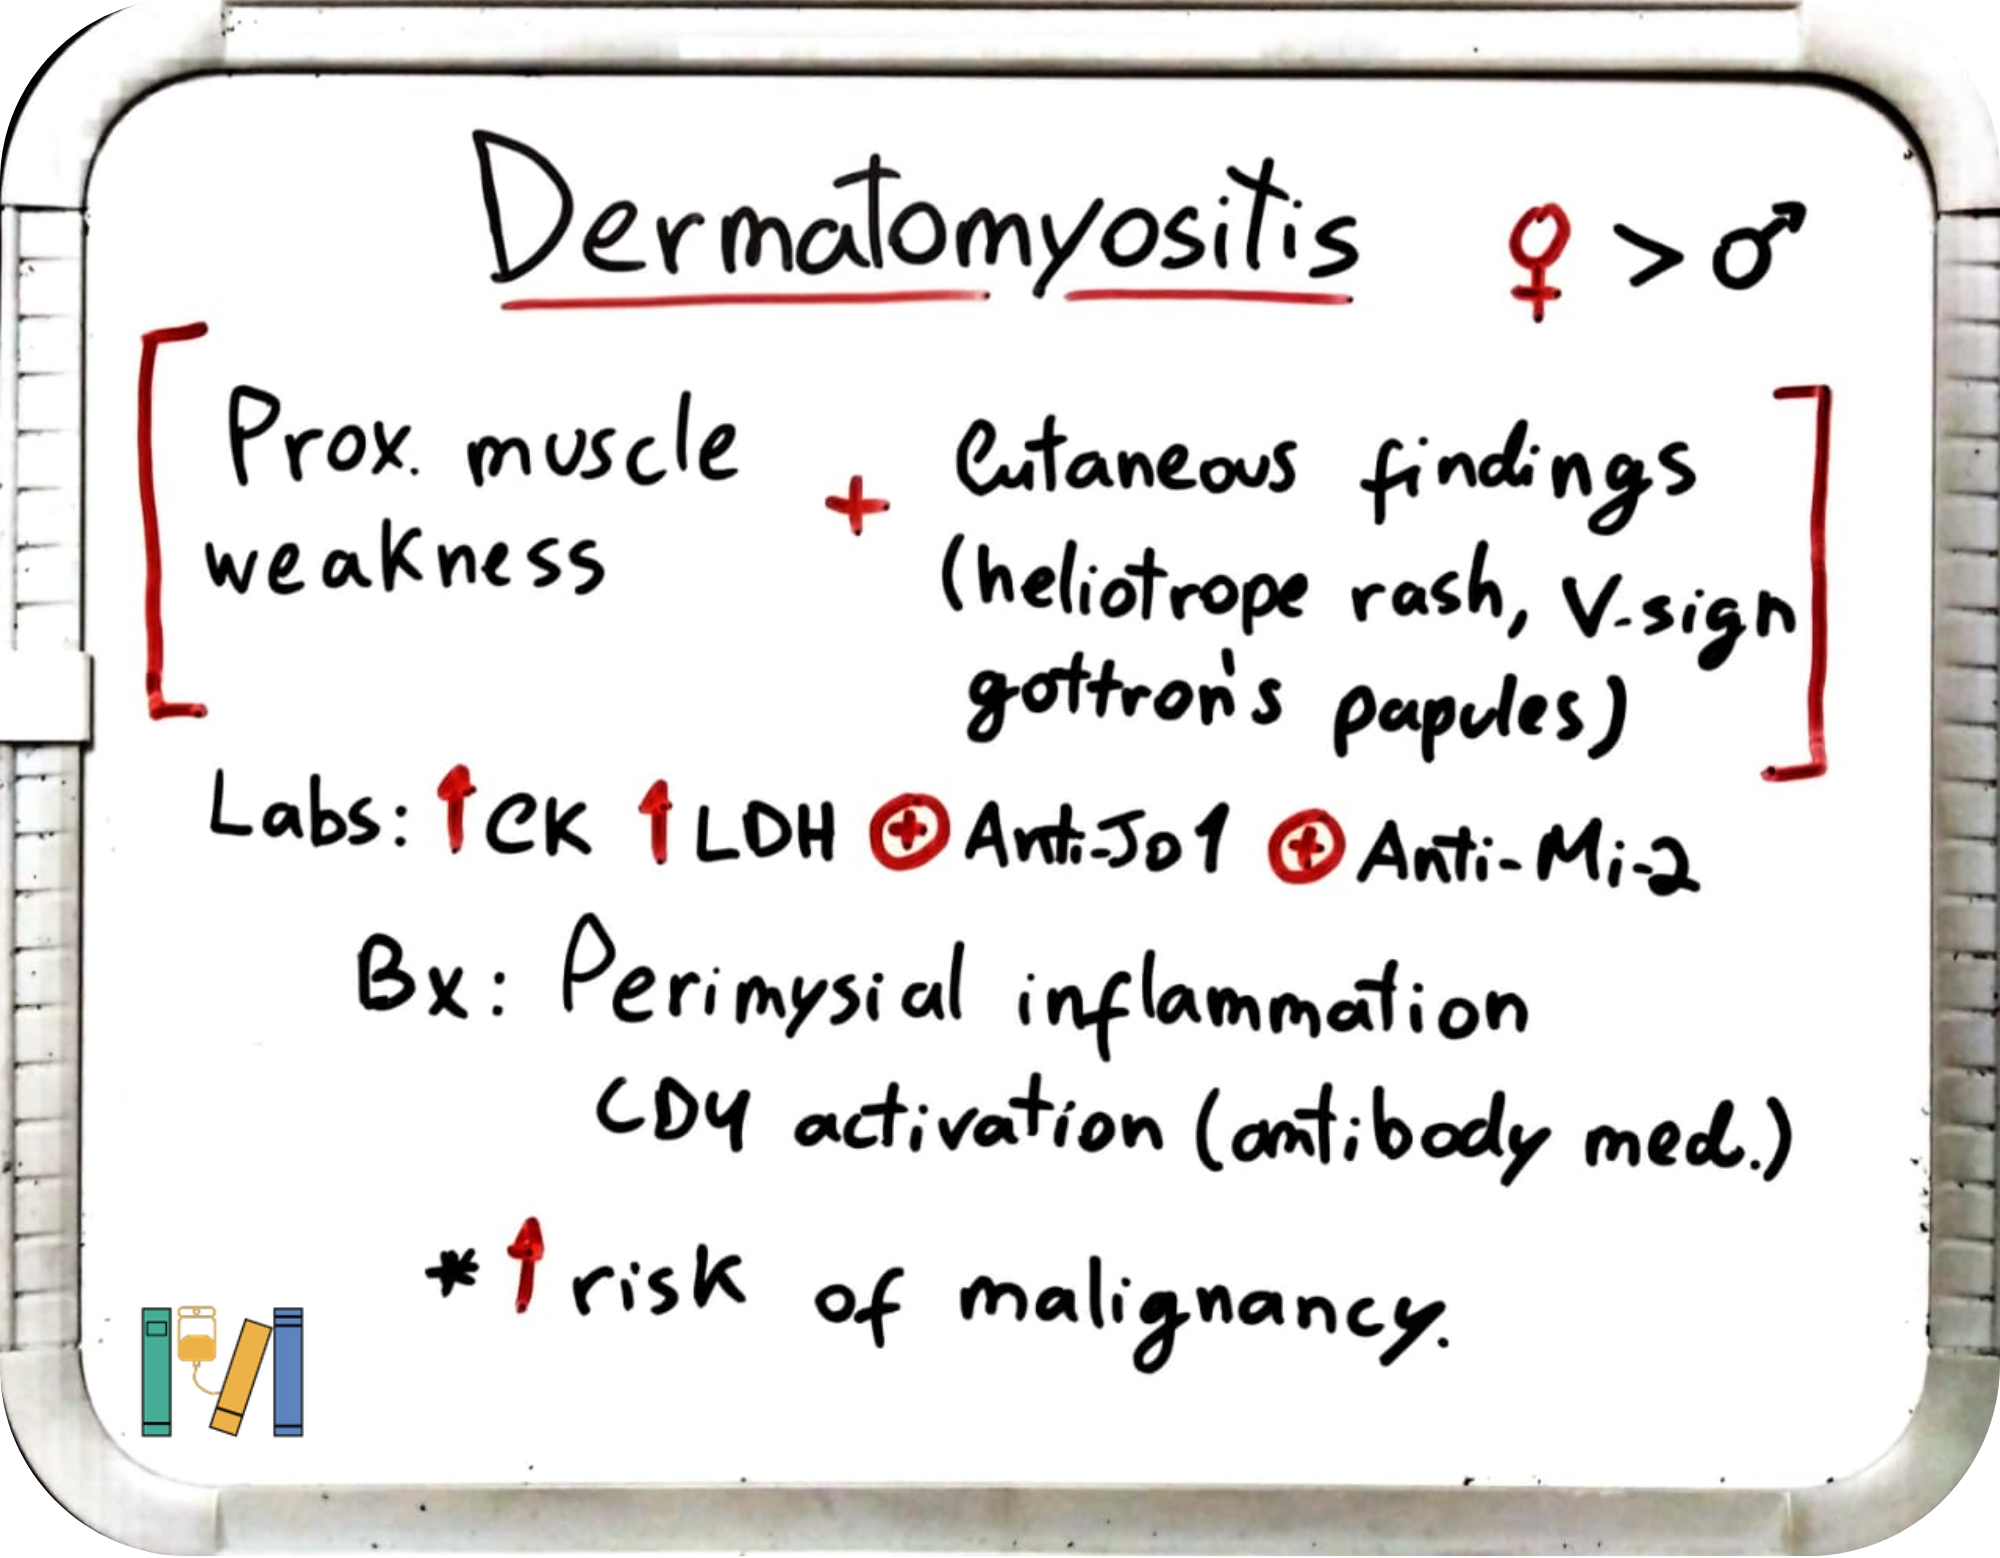 Dermatomyositis ♀ > ♂
Prox. muscle weakness + Cutaneous findings (heliotrope rash, V-sign gottron's papules)
Labs: ↑CK ↑LDH ⊕Anti-Jo1 ⊕Anti-Mi-2
Bx: Perimysial inflammation
CD4 activation (antibody med.)
*↑risk of malignancy.